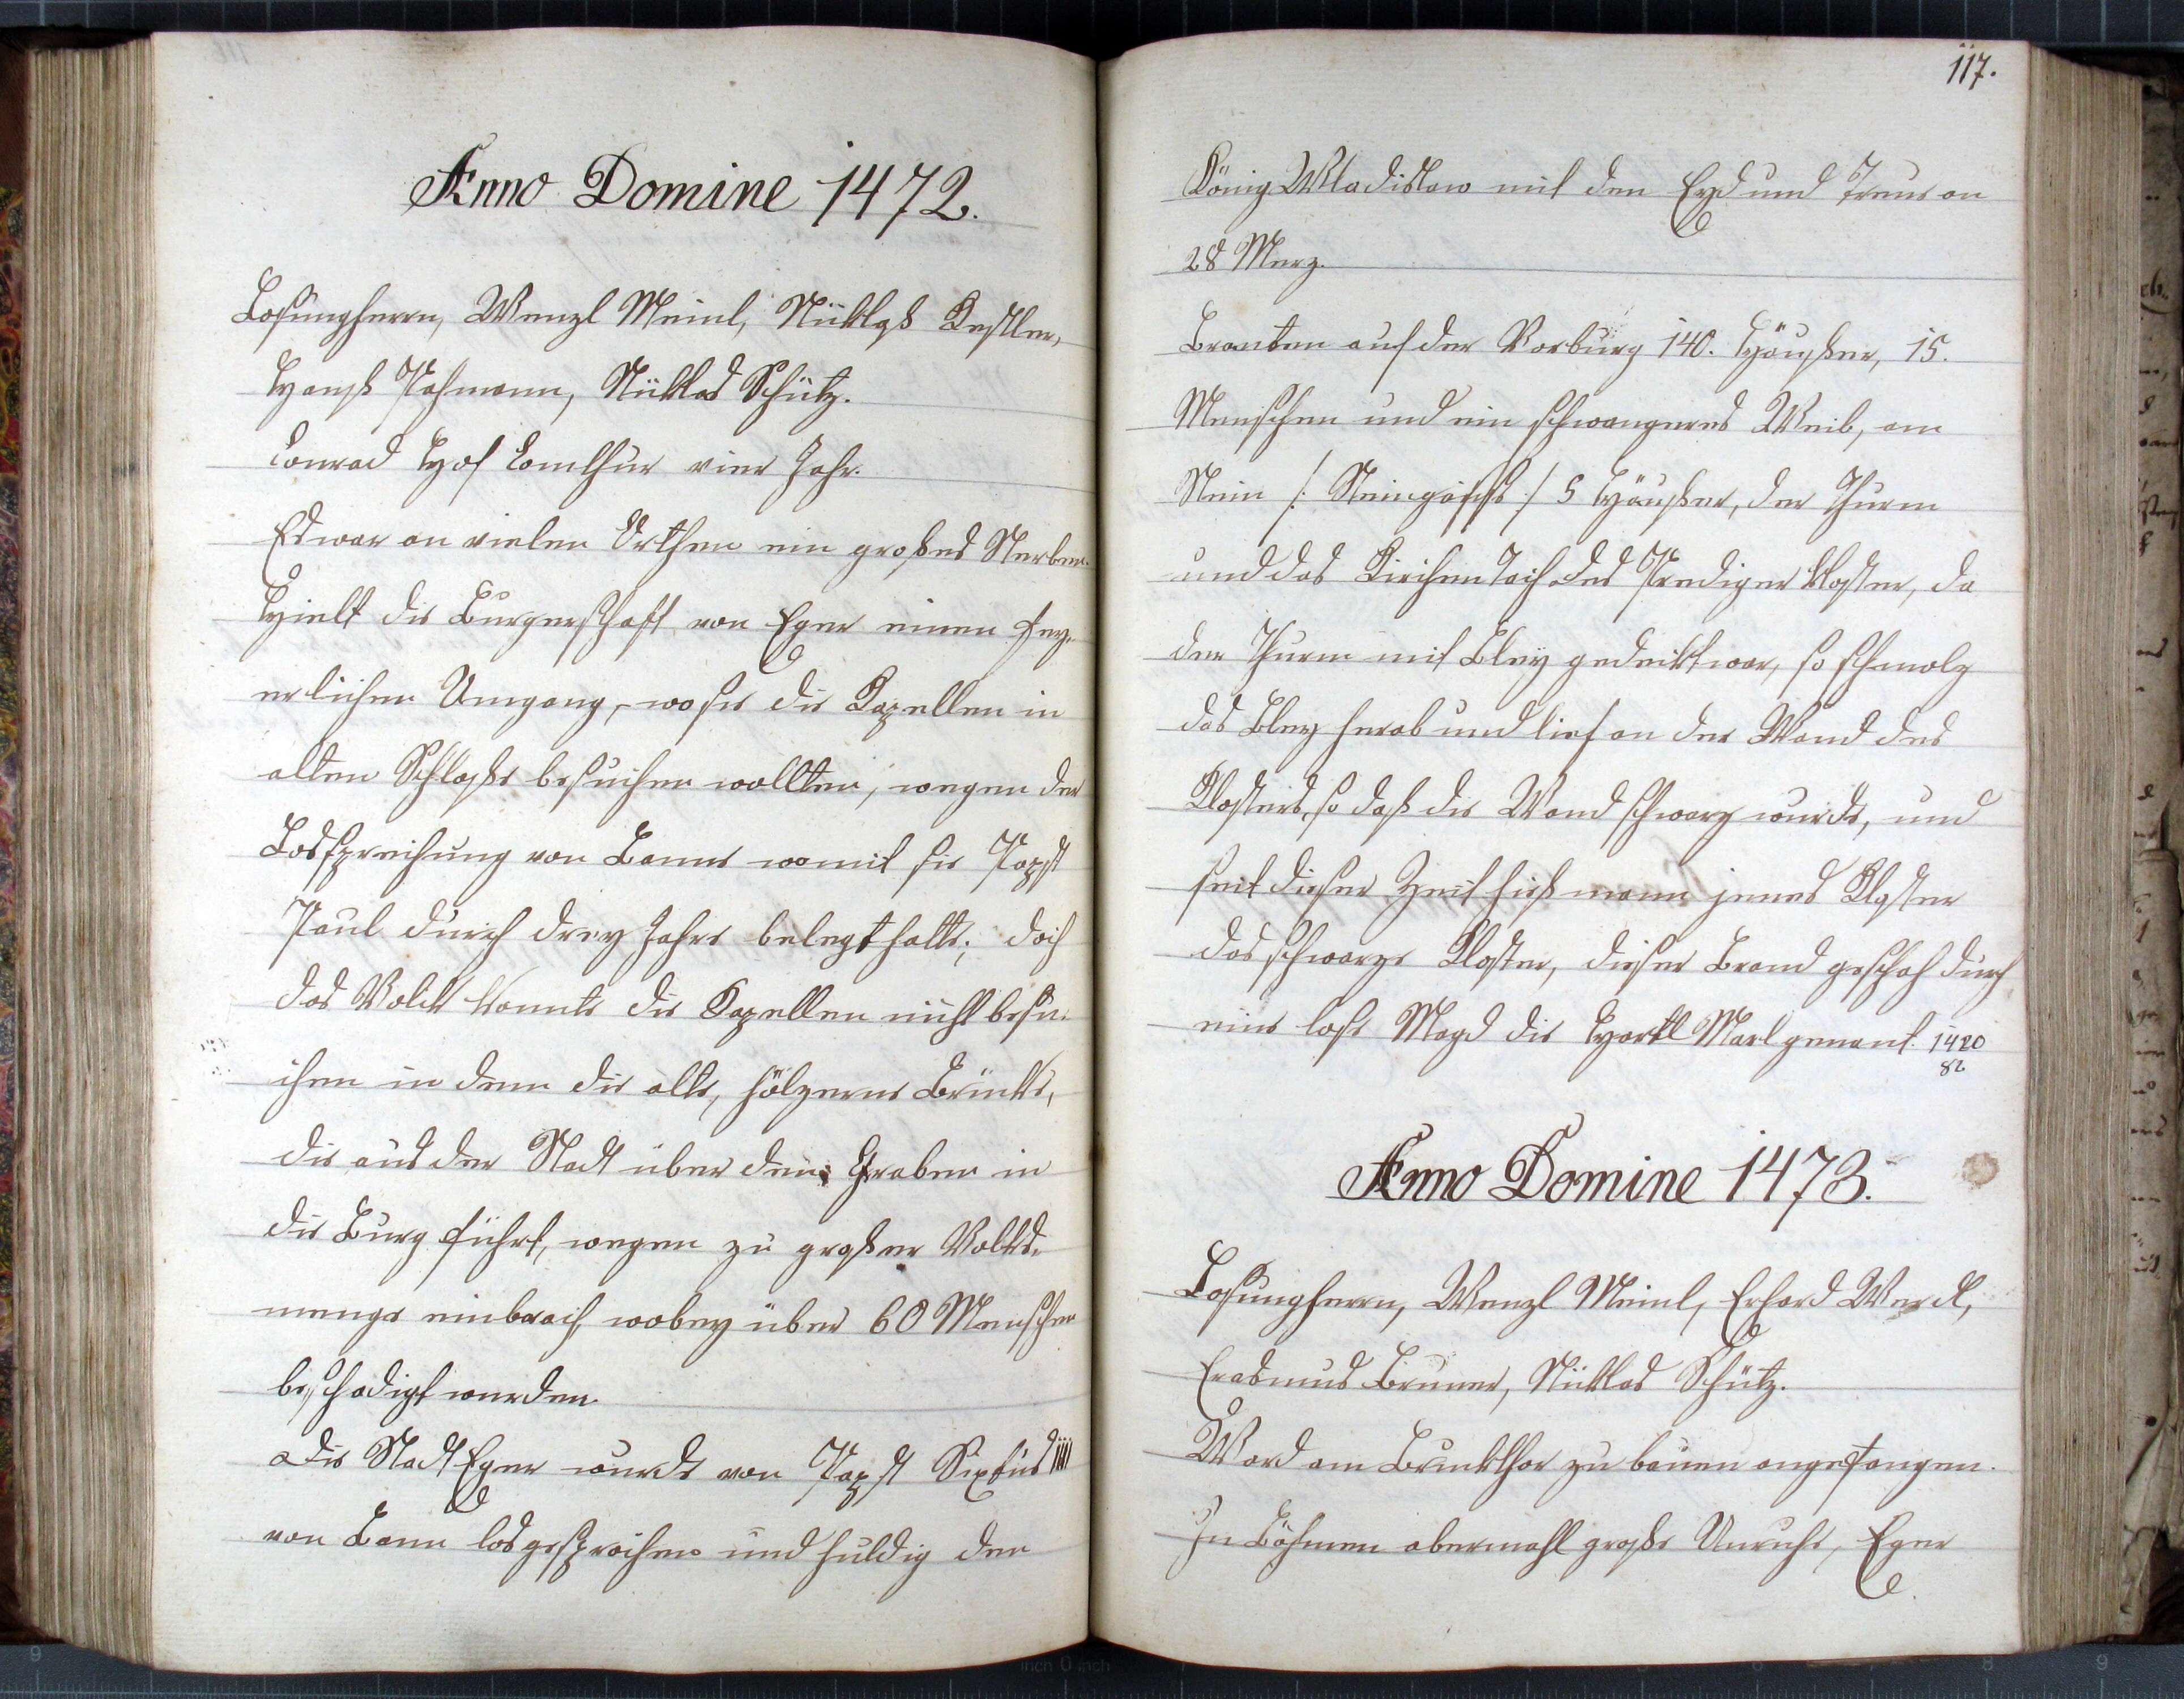 Anno Domine 1472.
Losungherrn, Wenzl Meinl, Nücklaß Kestler,
Hanß Pachmann, Nücklas Schütz.
Conrad Hof Comthur vier Jahr.
Es war an vielen Orthen ein großes Sterben.
Hielt die Burgerschaft von Eger einen fey-
erlichen Umgang, wo sie die Kapellen in
alten Schloße besuchen wollten, wegen der
Lossprechung von Banne womit sie Papst
Paul durch drey Jahre belegt hatte; doch
das Volck konnte die Kapellen nicht besu-
chen in dem die alte, hölzerne Brücke,
die aus der Stadt über den Graben in
die Burg führt, wegen zu großer Volks-
menge einbrach, wobey über 60 Menschen
beschadigt wurden.
Die Stadt Eger wurde von Papst Sixtus IIII
von Bann losgesprochen und huldig den
117.
König Wladislaw mit den Eyd und Treue an
28 Merz.
Branten auf der Vorburg 140. Häußer, 15.
Menschen und ein schwangeres Weib, am
Stein /: Steingasse :/ 5 Häußer, der Thurm
und das Kirchen Tach des Prediger Kloster, da
der Thurm mit Bley gedeckt war, so schmolz
das Bley herab und lief an der Wand des
Klosters, so daß die Wand schwarz wurde, und
seit dieser Zeit hieß mann jenes Kloster
das schwarze Kloster, dieser Brand geschah durch
eine lose Magd die Hartl Marl genant. 1420
82
Anno Domine 1473.
Losungherrn, Wenzl Meinl, Erhard Werdl,
Erasmus Bruner, Nücklas Schütz.
Ward am Bruckthor zu bauen angefangen.
In Böhmen abermahl große Unruhe, Eger